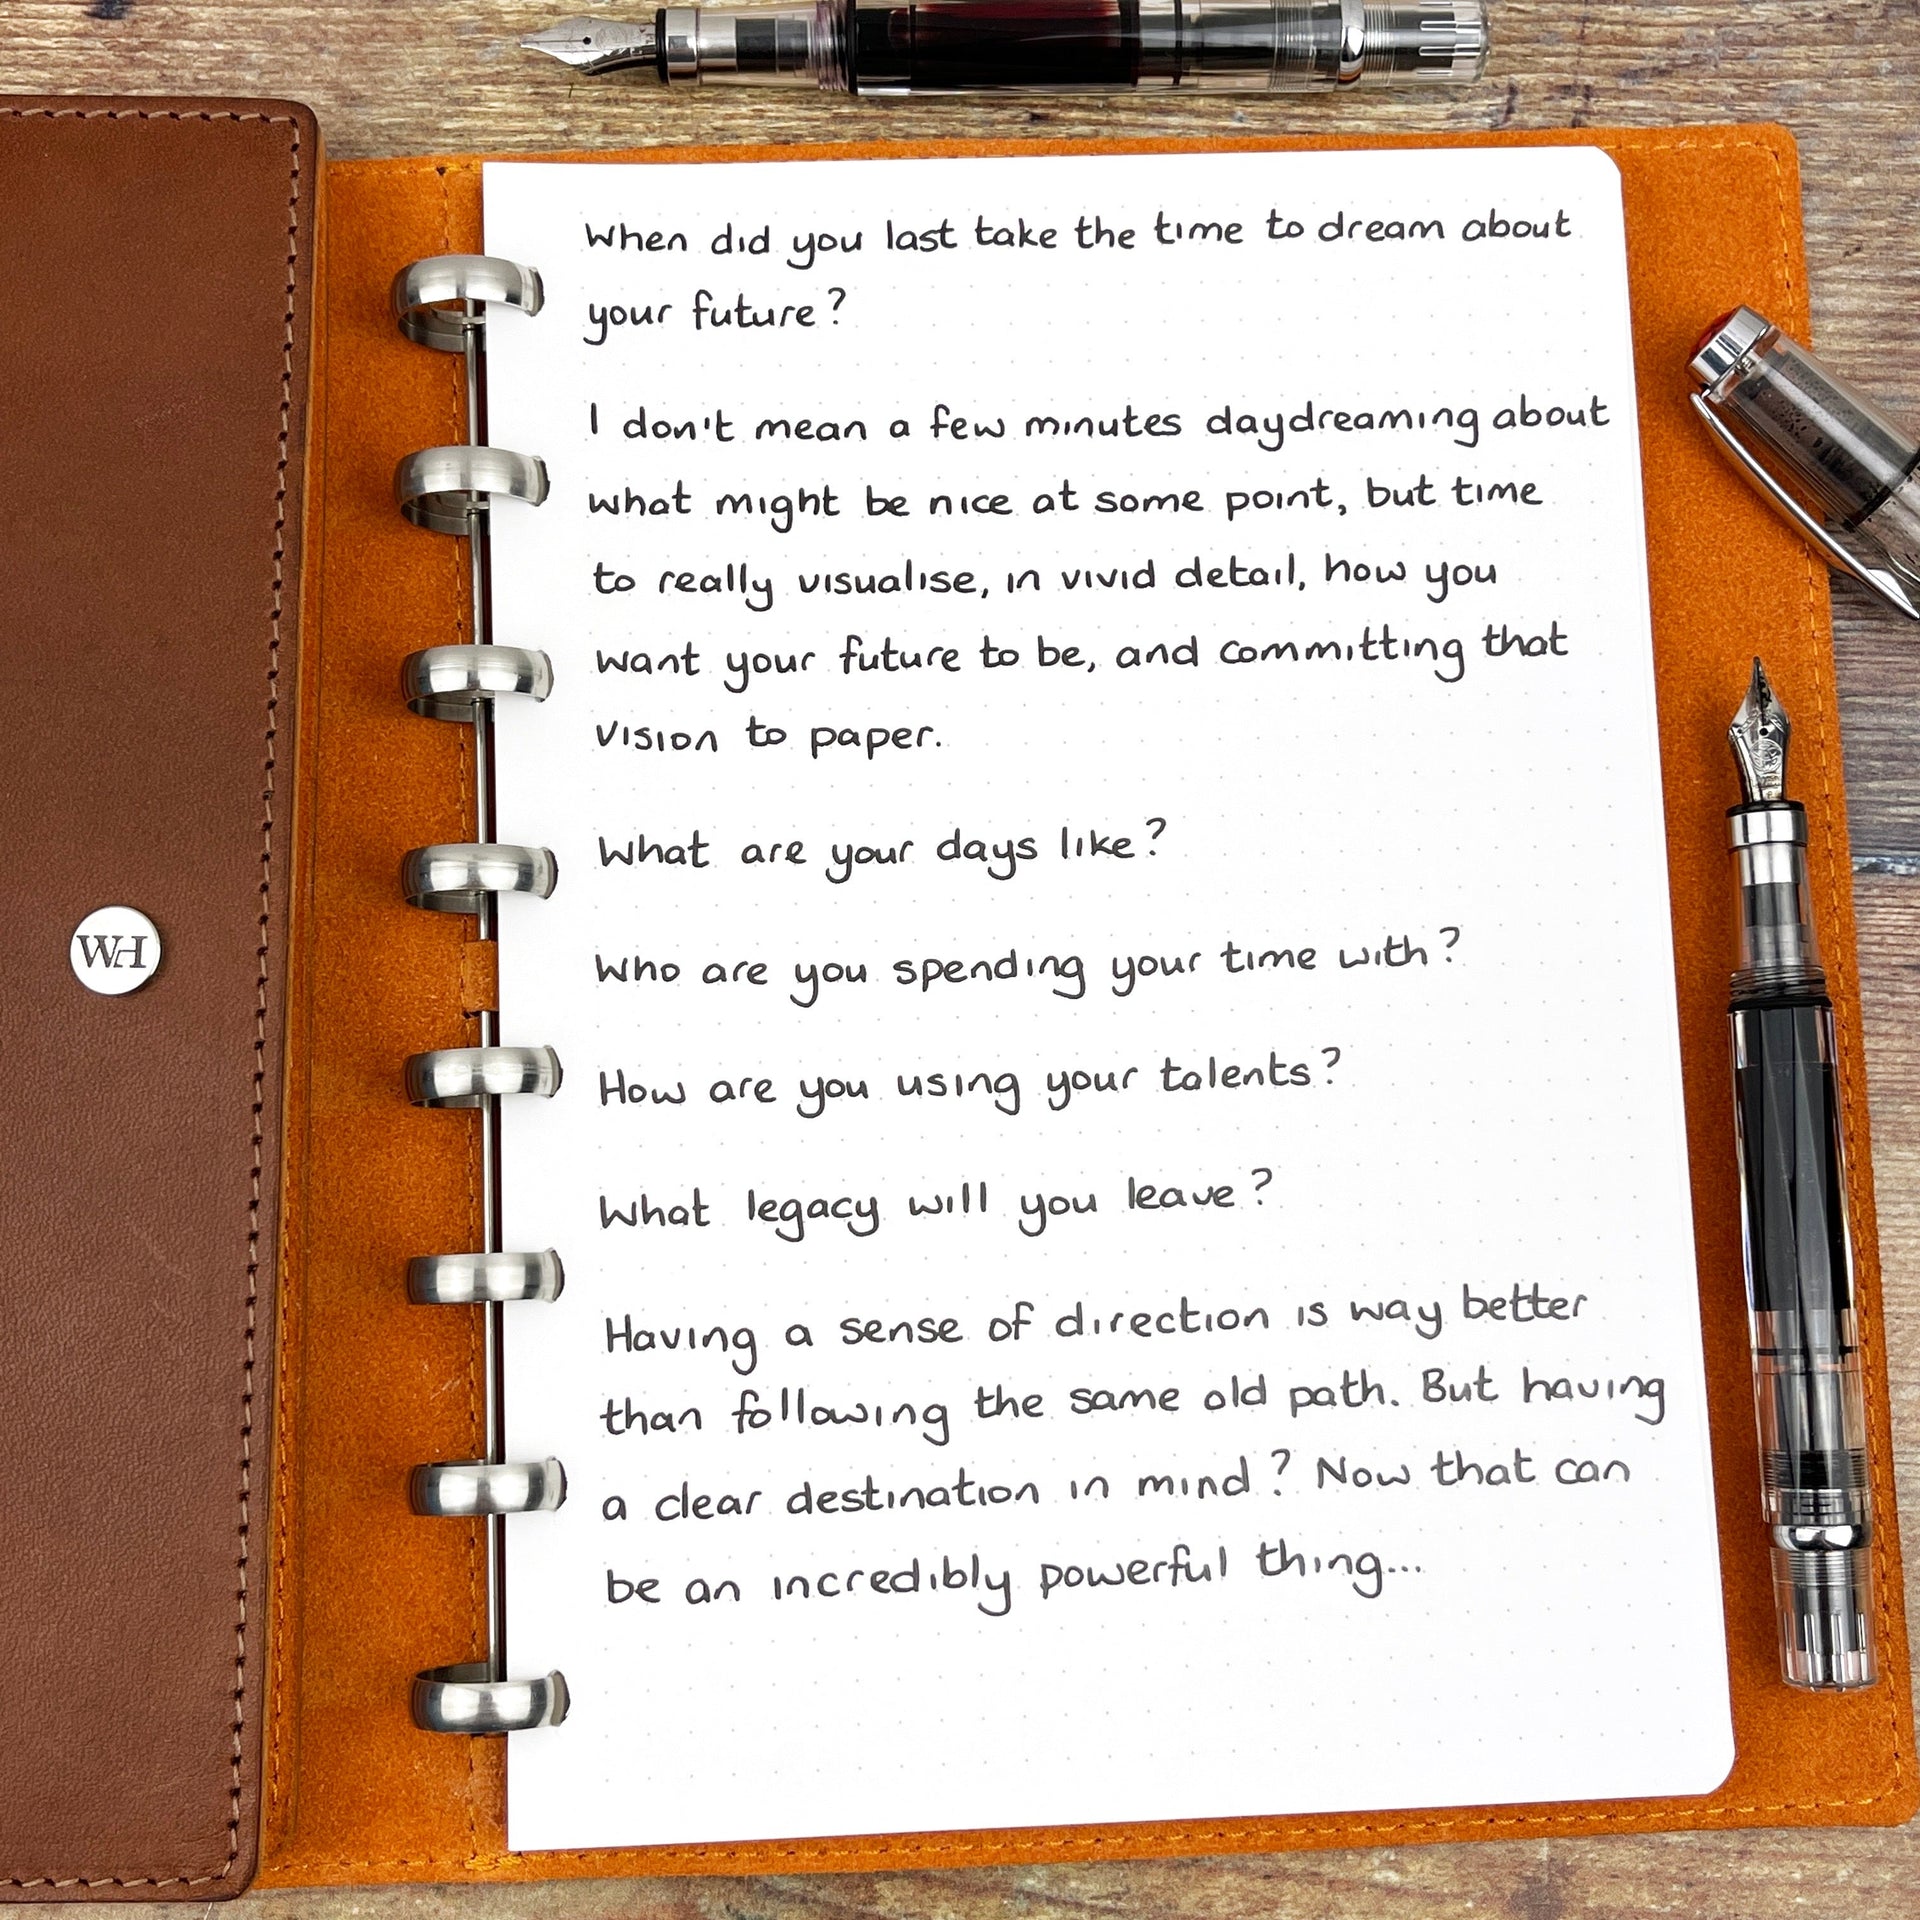 WH
When did you last take the time to dream about
your future?
I don't mean a few minutes daydreaming about
what might be nice at some point, but time
to really visualise, in vivid detail, how you
want your future to be, and committing that
vision to paper.
What are your days like?
Who are you spending your time with?
How are you using your talents?
What legacy will you leave?
Having a sense of direction is way better
than following the same old path. But having
a clear destination in mind? Now that can
be an incredibly powerful thing...